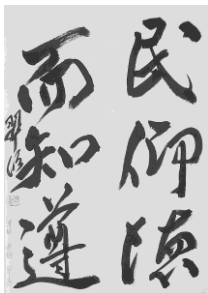 民仰德
而知遵